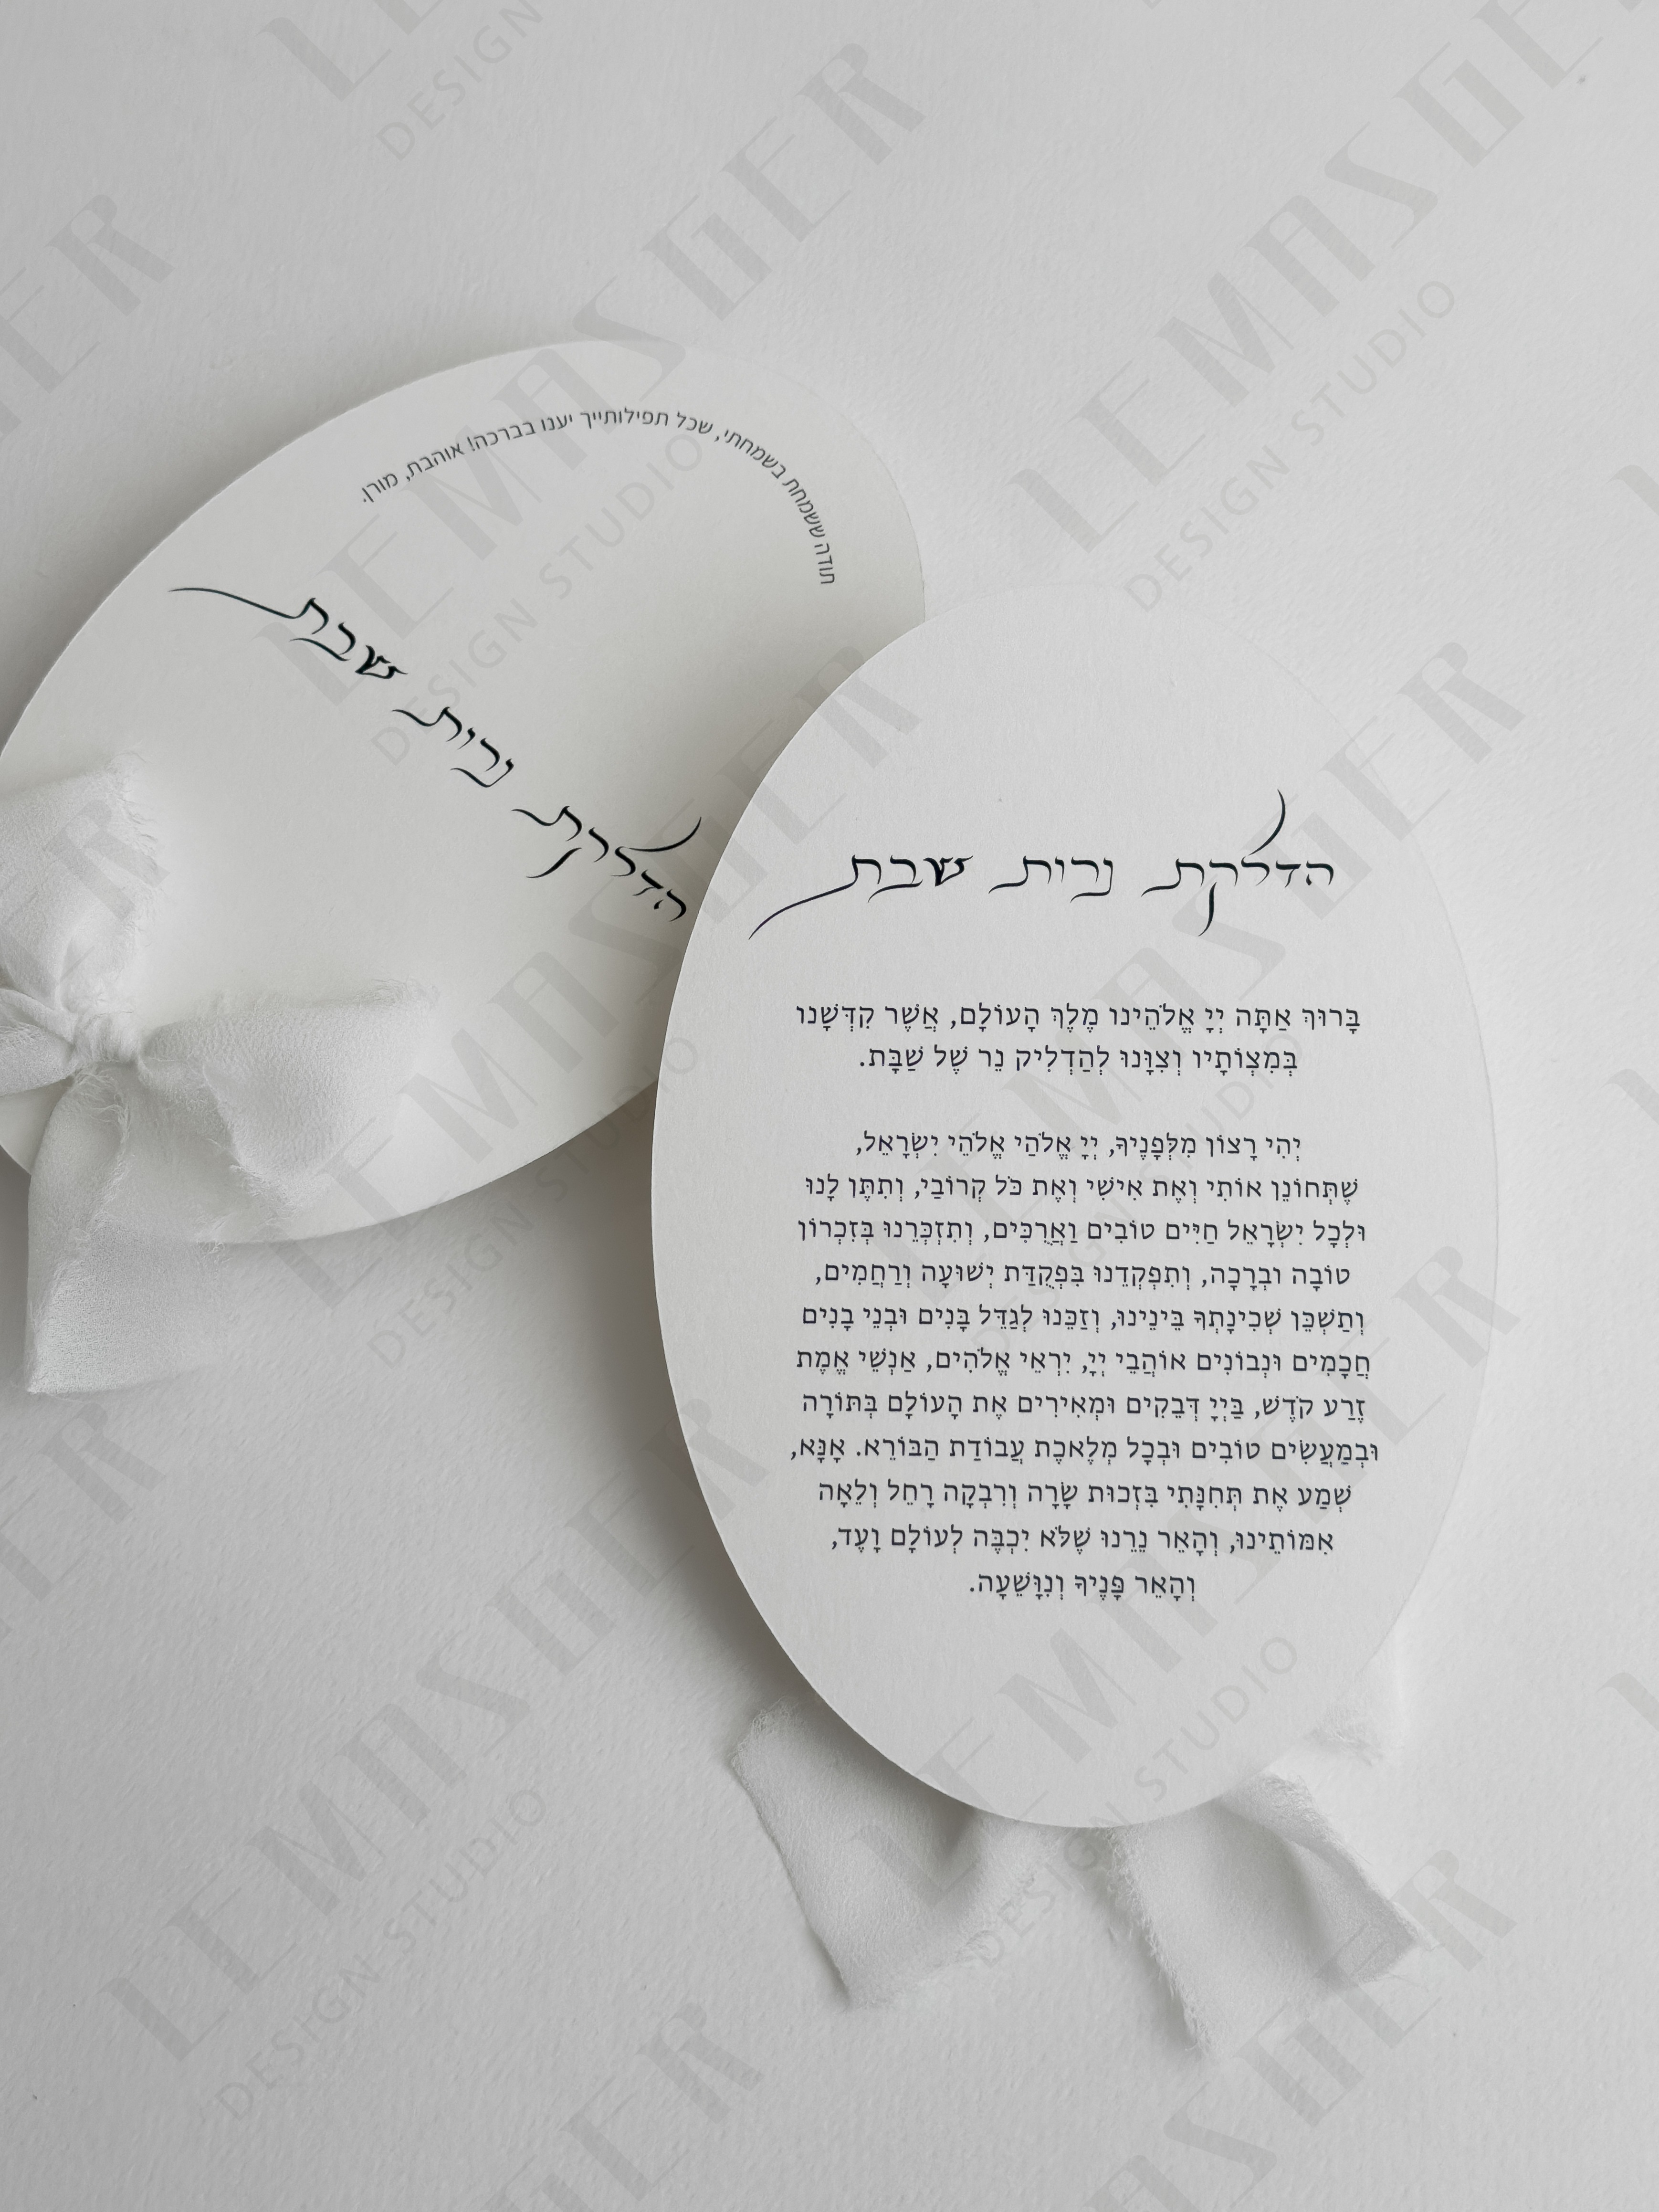 תודה ששמחת בשמחתי, שכל תפילותייך יענו בברכה! אוהבת, מורן.
הדלקת נרות שבת
הדלקת נרות שבת
בָּרוּךְ אַתָּה יְיָ אֱלֹהֵינוּ מֶלֶךְ הָעוֹלָם, אֲשֶׁר קִדְּשָׁנוּ
בְּמִצְוֹתָיו וְצִוָּנוּ לְהַדְלִיק נֵר שֶׁל שַׁבָּת.
יְהִי רָצוֹן מִלְּפָנֶיךָ, יְיָ אֱלֹהַי אֱלֹהֵי יִשְׂרָאֵל,
שֶׁתְּחוֹנֵן אוֹתִי וְאֶת אִישִׁי וְאֶת כֹּל קְרוֹבַי, וְתִתֵּן לָנוּ
וּלְכָל יִשְׂרָאֵל חַיִּים טוֹבִים וַאֲרֻכִּים, וְתִזְכְּרֵנוּ בְּזִכְרוֹן
טוֹבָה וּבְרָכָה, וְתִפְקְדֵנוּ בִּפְקֻדַּת יְשׁוּעָה וְרַחֲמִים,
וְתַשְׁכֵּן שְׁכִינָתְךָ בֵּינֵינוּ, וְזַכֵּנוּ לְגַדֵּל בָּנִים וּבְנֵי בָנִים
חֲכָמִים וּנְבוֹנִים אוֹהֲבֵי יְיָ, יִרְאֵי אֱלֹהִים, אַנְשֵׁי אֱמֶת
זֶרַע קֹדֶשׁ, בַּיְיָ דְּבֵקִים וּמְאִירִים אֶת הָעוֹלָם בְּתּוֹרָה
וּבְמַעֲשִׂים טוֹבִים וּבְכָל מְלֶאכֶת עֲבוֹדַת הַבּוֹרֵא. אָנָּא,
שְׁמַע אֶת תְּחִנָּתִי בִּזְכוּת שָׂרָה וְרִבְקָה רָחֵל וְלֵאָה
אִמּוֹתֵינוּ, וְהָאֵר נֵרֵנוּ שֶׁלֹּא יִכְבֶּה לְעוֹלָם וָעֶד,
וְהָאֵר פָּנֶיךָ וְנִוָּשֵׁעָה.
LEMASGER
DESIGN STUDIO